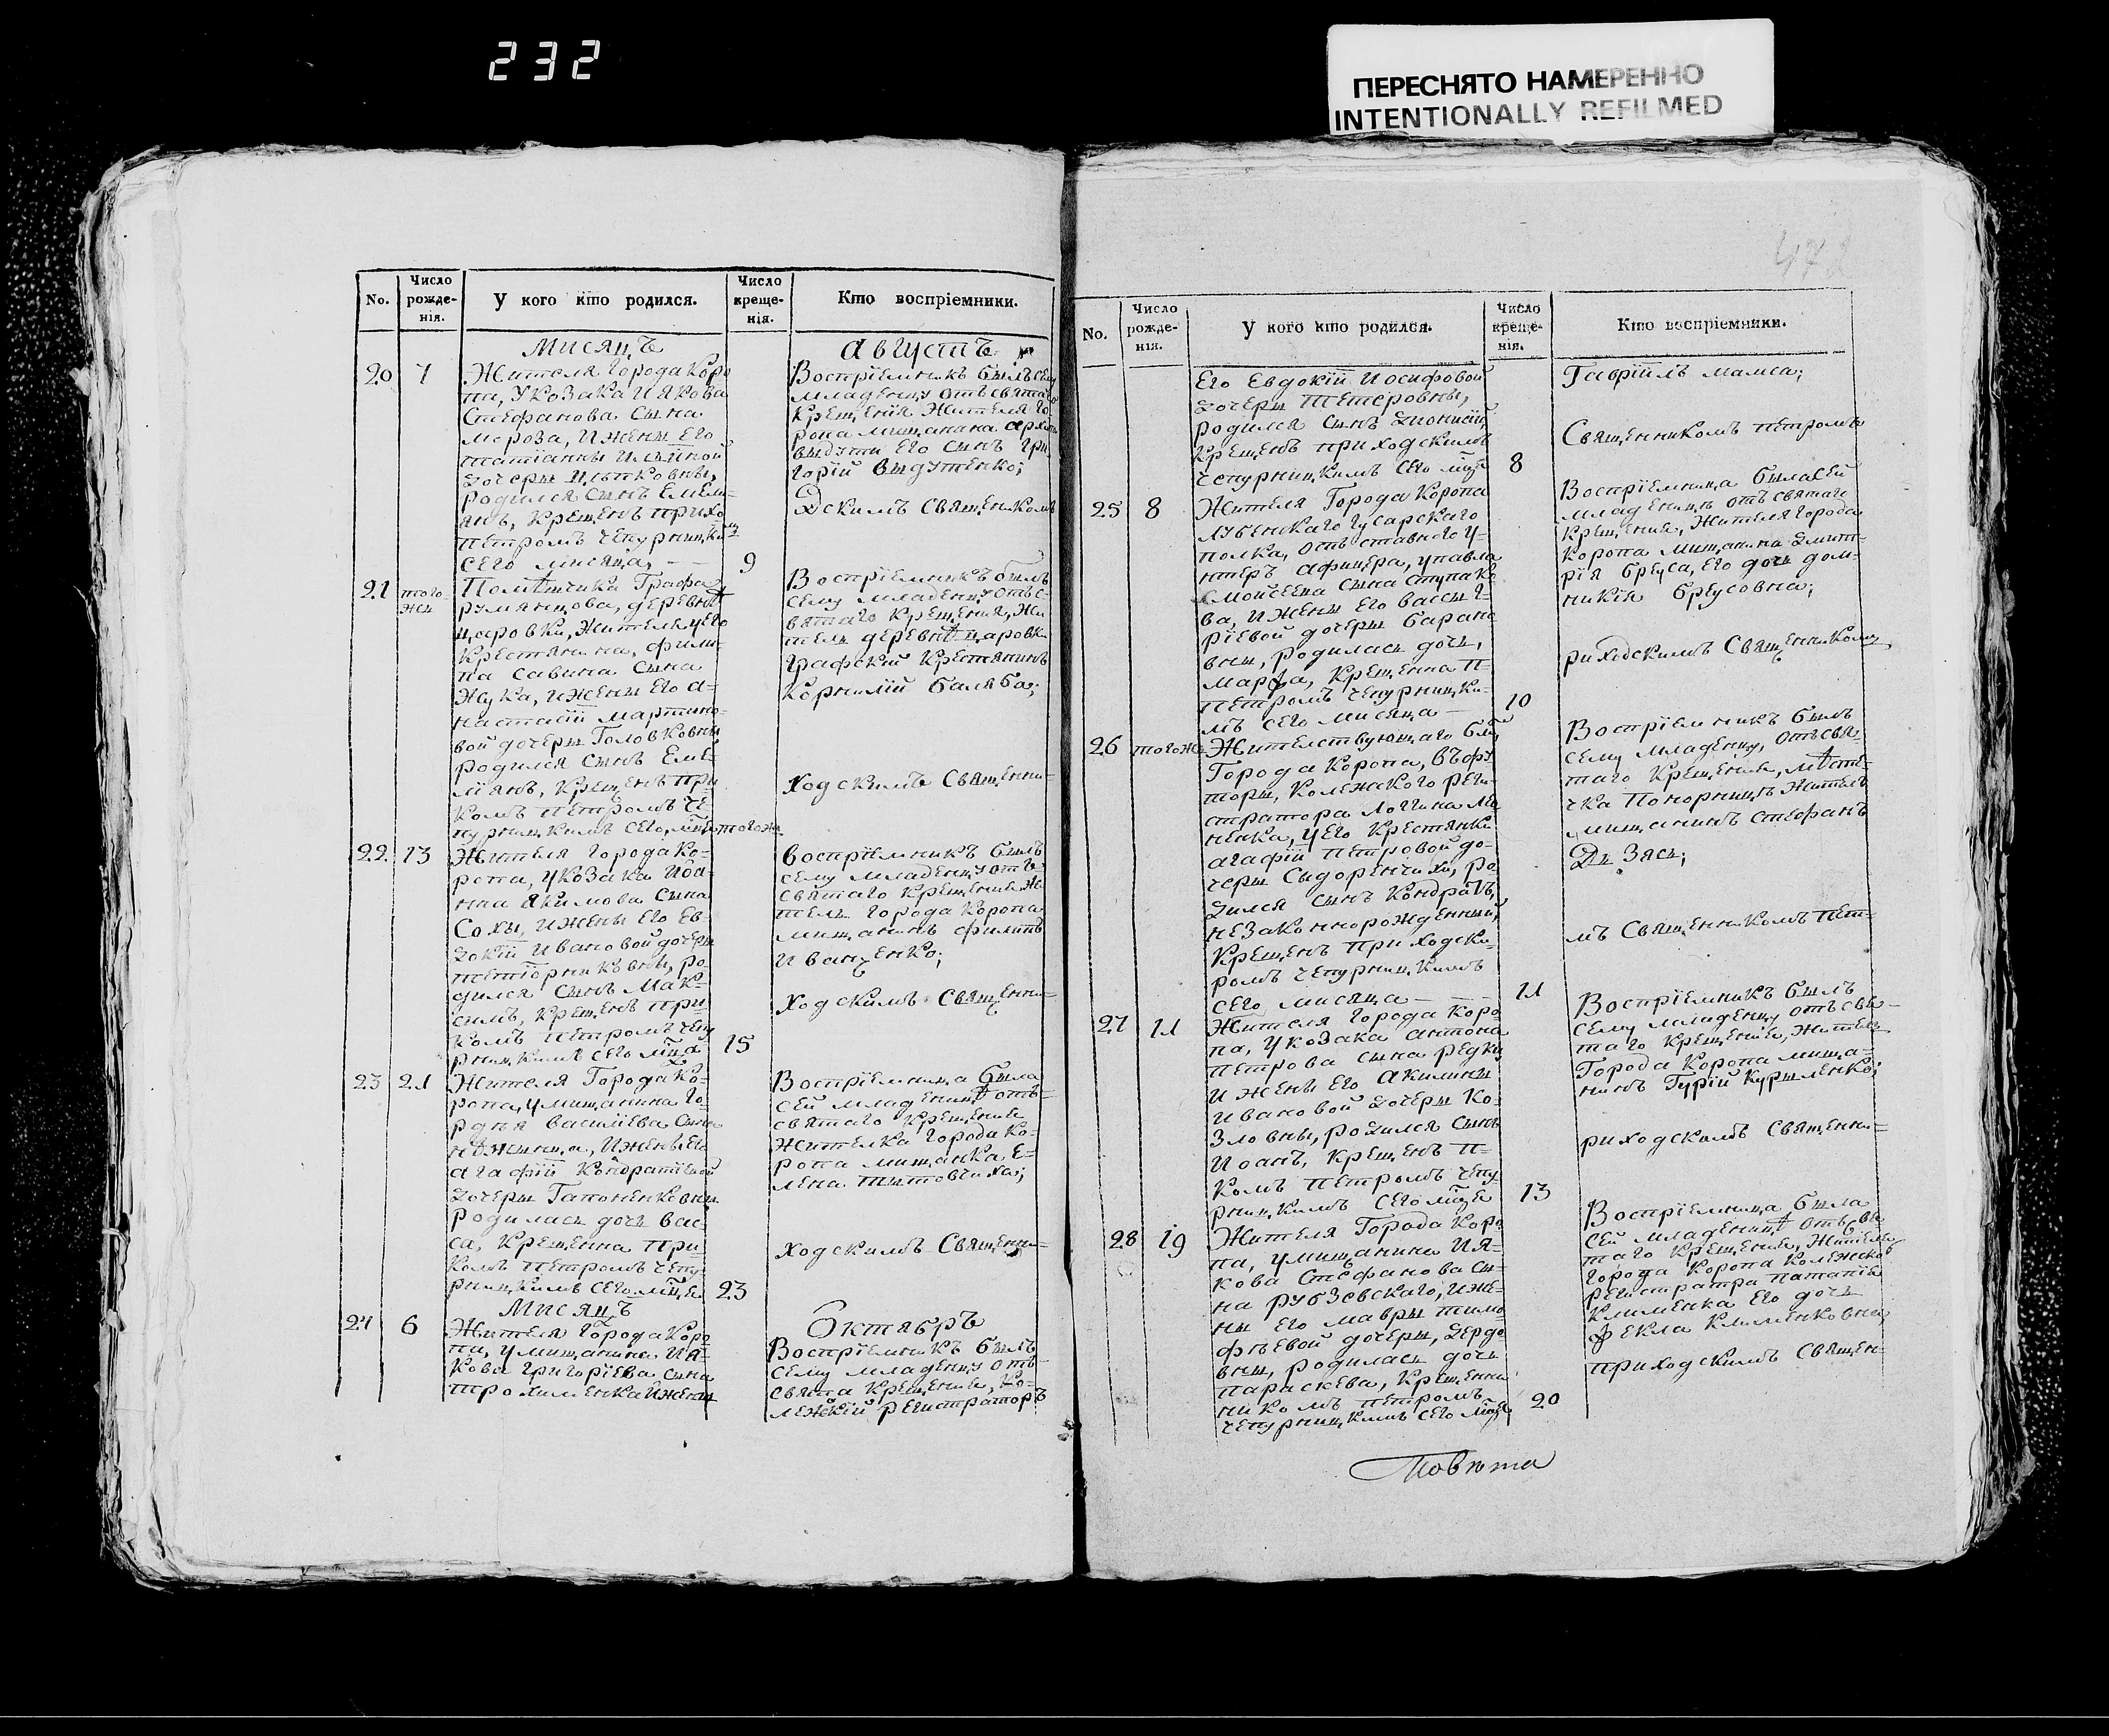 232
ПЕРЕСНЯТО НАМЕРЕННО
INTENTIONALLY REFILMED
472
No.
Число рожде- нія.
У кого кто родился.
Число креще- нія.
Кто воспріемники.
Мисяцъ
Августъ
20 7
Жителя города Коро
па, У Козака Иякова
Стефанова сына
Мороза, И жены Его
татіанны Ильиной
дочеры Ицьтковны,
родился сынъ Емели-
янъ, Крещенъ прихо
Петромъ Чепурницки
сего мисяца, — 9
Воспріемникъ былъ сему
младенцу отъ святаго
крещенія Жителя Ко-
ропа мищанина
выдути Его сынъ Гри
горій Выдутенко;
дскимъ Священикомъ
21 того- жъ
Помѣтчика Графа
румянцова, деревнѣ
царовки, Жителя у его
крестянина, фили-
па савина сына
Жука, и жены его а-
настасіи мартино-
вой дочеры Головковны
родился сынъ Еме-
ліянъ, Крещенъ при
комъ петромъ Че-
пурницкимъ сего мця тогожъ
Воспріемникъ былъ
сему младенцу отъ с-
вятаго крещенія, Жи-
тель деревнѣ царовки
графскій Крестянинъ
Корнилій баляба;
ходскимъ Священни-
22 13
Жителя города Ко-
ропа, у козака Иоа-
нна Якимова сына
Сохы, и жены его Ев-
докіи Ивановой дочеры
ро
дился сынъ Мак-
симъ, Крещенъ при
комъ петромъ чепу
рницкимъ сего мця 15
Воспріемникъ былъ
сему младенцу отъ
святаго крещенія Жи
тель города Коропа
мищанинъ филипъ
Иванченко;
ходскимъ Священни-
23 21
Жителя Города Ко-
ропа, у мищанина Го-
рдѣя василіева сына
нѣжинца, и жены его
агафіи Кондратіевой
дочеры Гапоненковны
родилась дочь вас-
са, Крещенна при-
комъ петромъ чепу
рницкимъ сего мця 23
Воспріемница была
сей младеницѣ отъ
святаго крещенія
жителка города Ко-
ропа мищанка Е-
лена титовчиха;
ходскимъ Священни-
Мисяцъ
Октябръ
24 6
Жителя Города Коро
па, у мищанина Ия-
кова григоріева сына
трохименка и жены
Воспріемникъ былъ
сему младенцу отъ
свята крещенія, Ко-
лежскій регистраторъ
No.
Число рожде- нія.
У кого кто родился.
Число креще- нія.
Кто воспріемники.
Его Евдокіи Иосифовой
дочеры тетеровны,
родился сынъ дионисій
Крещенъ приходскимъ
чепурницкимъ сего мця 8
Гавріилъ мамса;
Священникомъ петромъ
25 8
Жителя Города Коропа
лубенкаго гусарскаго
полка, отъ ставного у-
нтеръ афицера, у павла
Мойсеева сына ступако
ва, и жены его вассы Г-
ріевой дочеры барано
вны, родилась дочь,
марфа, Крещенна п-
петромъ чепурницки-
мъ сего мисяца — 10
Воспріемница была сей
младеницѣ отъ святаго
крещенія, жителя города
Коропа мищанина дмит-
рія бруса, его дочь дом-
никія брусовна;
риходскимъ Священникому
26 тогожъ
Жителствующаго бли
города Коропа, въ футоры, Колежского реги-
стратора логгина ма
ненка, у его крестянки
агафіи петровой до-
черы Сидоренчихи, ро
дился сынъ Кондратъ,
незаконнорожденный,
Крещенъ приходски-
ромъ чепурницкимъ
сего мисяца — 11
Воспріемникъ былъ
сему младенцу, отъ свя-
таго крещенія, мѣсте-
чка Понорницѣ житель
мищанинъ стефанъ
Дъ Зясь;
мъ Священникомъ пет-
27 11
Жителя города Коро
па, у козака антона
петрова сына редки
и жены его акилины
Ивановой дочеры Ко-
зловны, родился сынъ
Иоанъ, Крещенъ п-
комъ петромъ чепу
рницкимъ сего мця 13
Воспріемникъ былъ
сему младенцу отъ свя-
таго крещенія, житель
города Коропа мища-
нинъ Гурій Куриленко;
риходскимъ Священни-
28 19
Жителя Города Коро
па, у мищанина Ия-
кова Стефанова сы-
на рубзевского, и же-
ны его мавры тимо
фѣевой дочеры, дердо
вны, родилась дочь
параскева, Крещенна
никомъ петромъ
чепурницкимъ сего мця 20
Воспріемница была
сей младеницѣ отъ свя
таго крещенія, жителя
города Коропа Колежско
регистратра патапія
Клименка его дочь
фекла Клименковна
приходскимъ Священ-